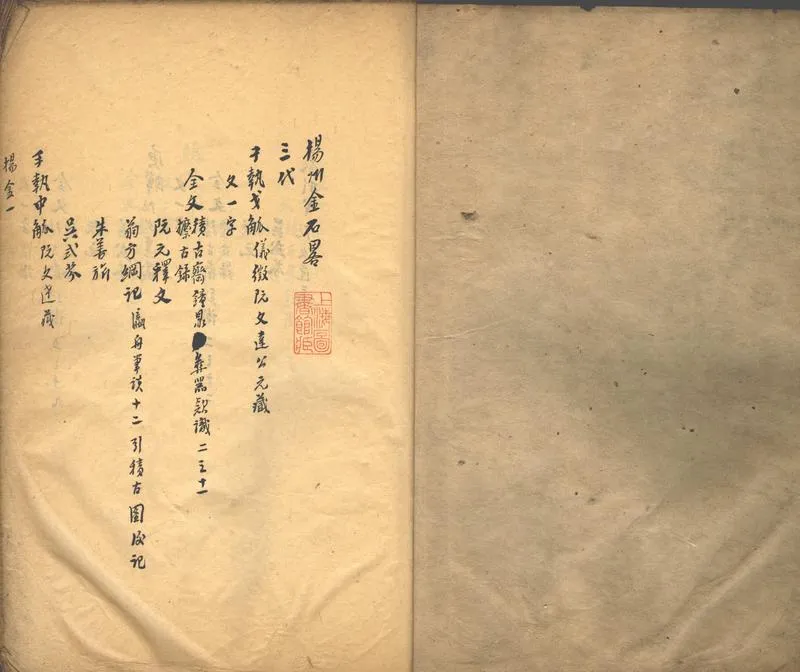 揚州金石畧
三代
子執戈觚儀徵阮文達公元藏
文一字
全文積古齋鐘鼎彝器款識二之十一
攈古錄
阮元釋文
翁方綱記瀛舟筆談十二引積古圖後記
朱善旂
吳式芬
手執中觚阮文達藏
揚金一
上海圖書館藏